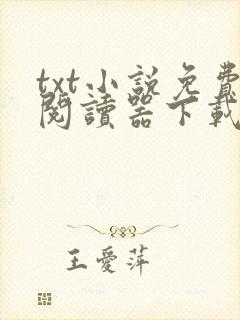 txt小說免費
閱讀器下載
王愛萍